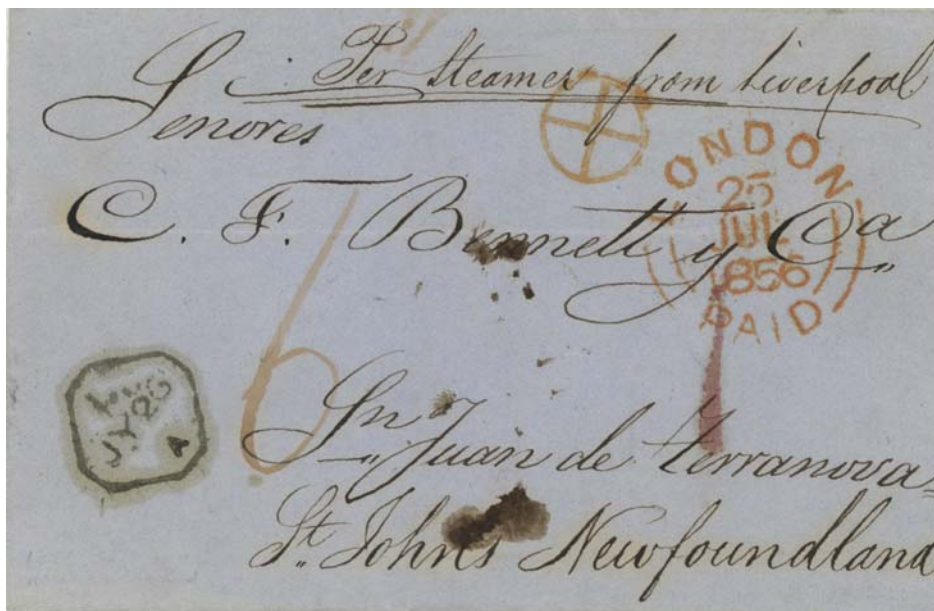 Per Steamer from Liverpool
Senores
C. F. Bennett y Ca
LONDON
25
JUL
1856
PAID
6
1
Sn Juan de terranova
St. Johns Newfoundland
JY 26
A